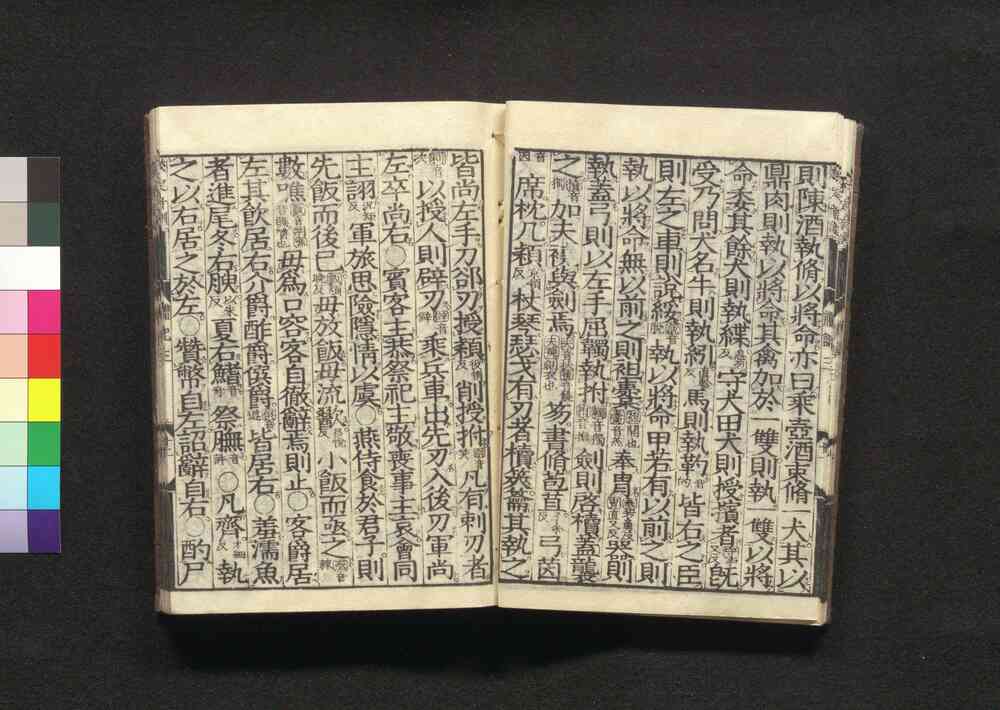 則陳酒執脩以將命亦曰乘壺酒束脩一犬其以
鼎肉則執以將命其禽加於一雙則執一雙以將
命委其餘犬則執緤守犬田犬則授擯者既
受乃問犬名牛則執紖馬則執靮皆右之臣
則左之車則說綏執以將命甲若有以前之則
執以將命無以前之則袒櫜奉冑器則
執蓋弓則以左手屈韣執拊劍則啓櫝蓋襲
之加夫襓與劍焉笏書脩苞苴弓茵
席枕几穎杖琴瑟戈有刃者櫝筴籥其執之
皆尚左手刀郤刃授穎削授拊凡有刺刃者
以授人則辟刃乘兵車出先刃入後刃軍尚
左卒尚右○賓客主恭祭祀主敬喪事主哀會同
主詡軍旅思險隱情以虞○燕侍食於君子則
先飯而後已毋放飯毋流歠小飯而亟之
數噍毋爲口容客自徹辭焉則止○客爵居
左其飲居右介爵酢爵僎爵皆居右○羞濡魚
者進尾冬右腴夏右鰭祭膴○凡齊執
之以右居之於左○贊幣自左詔辭自右○酌尸